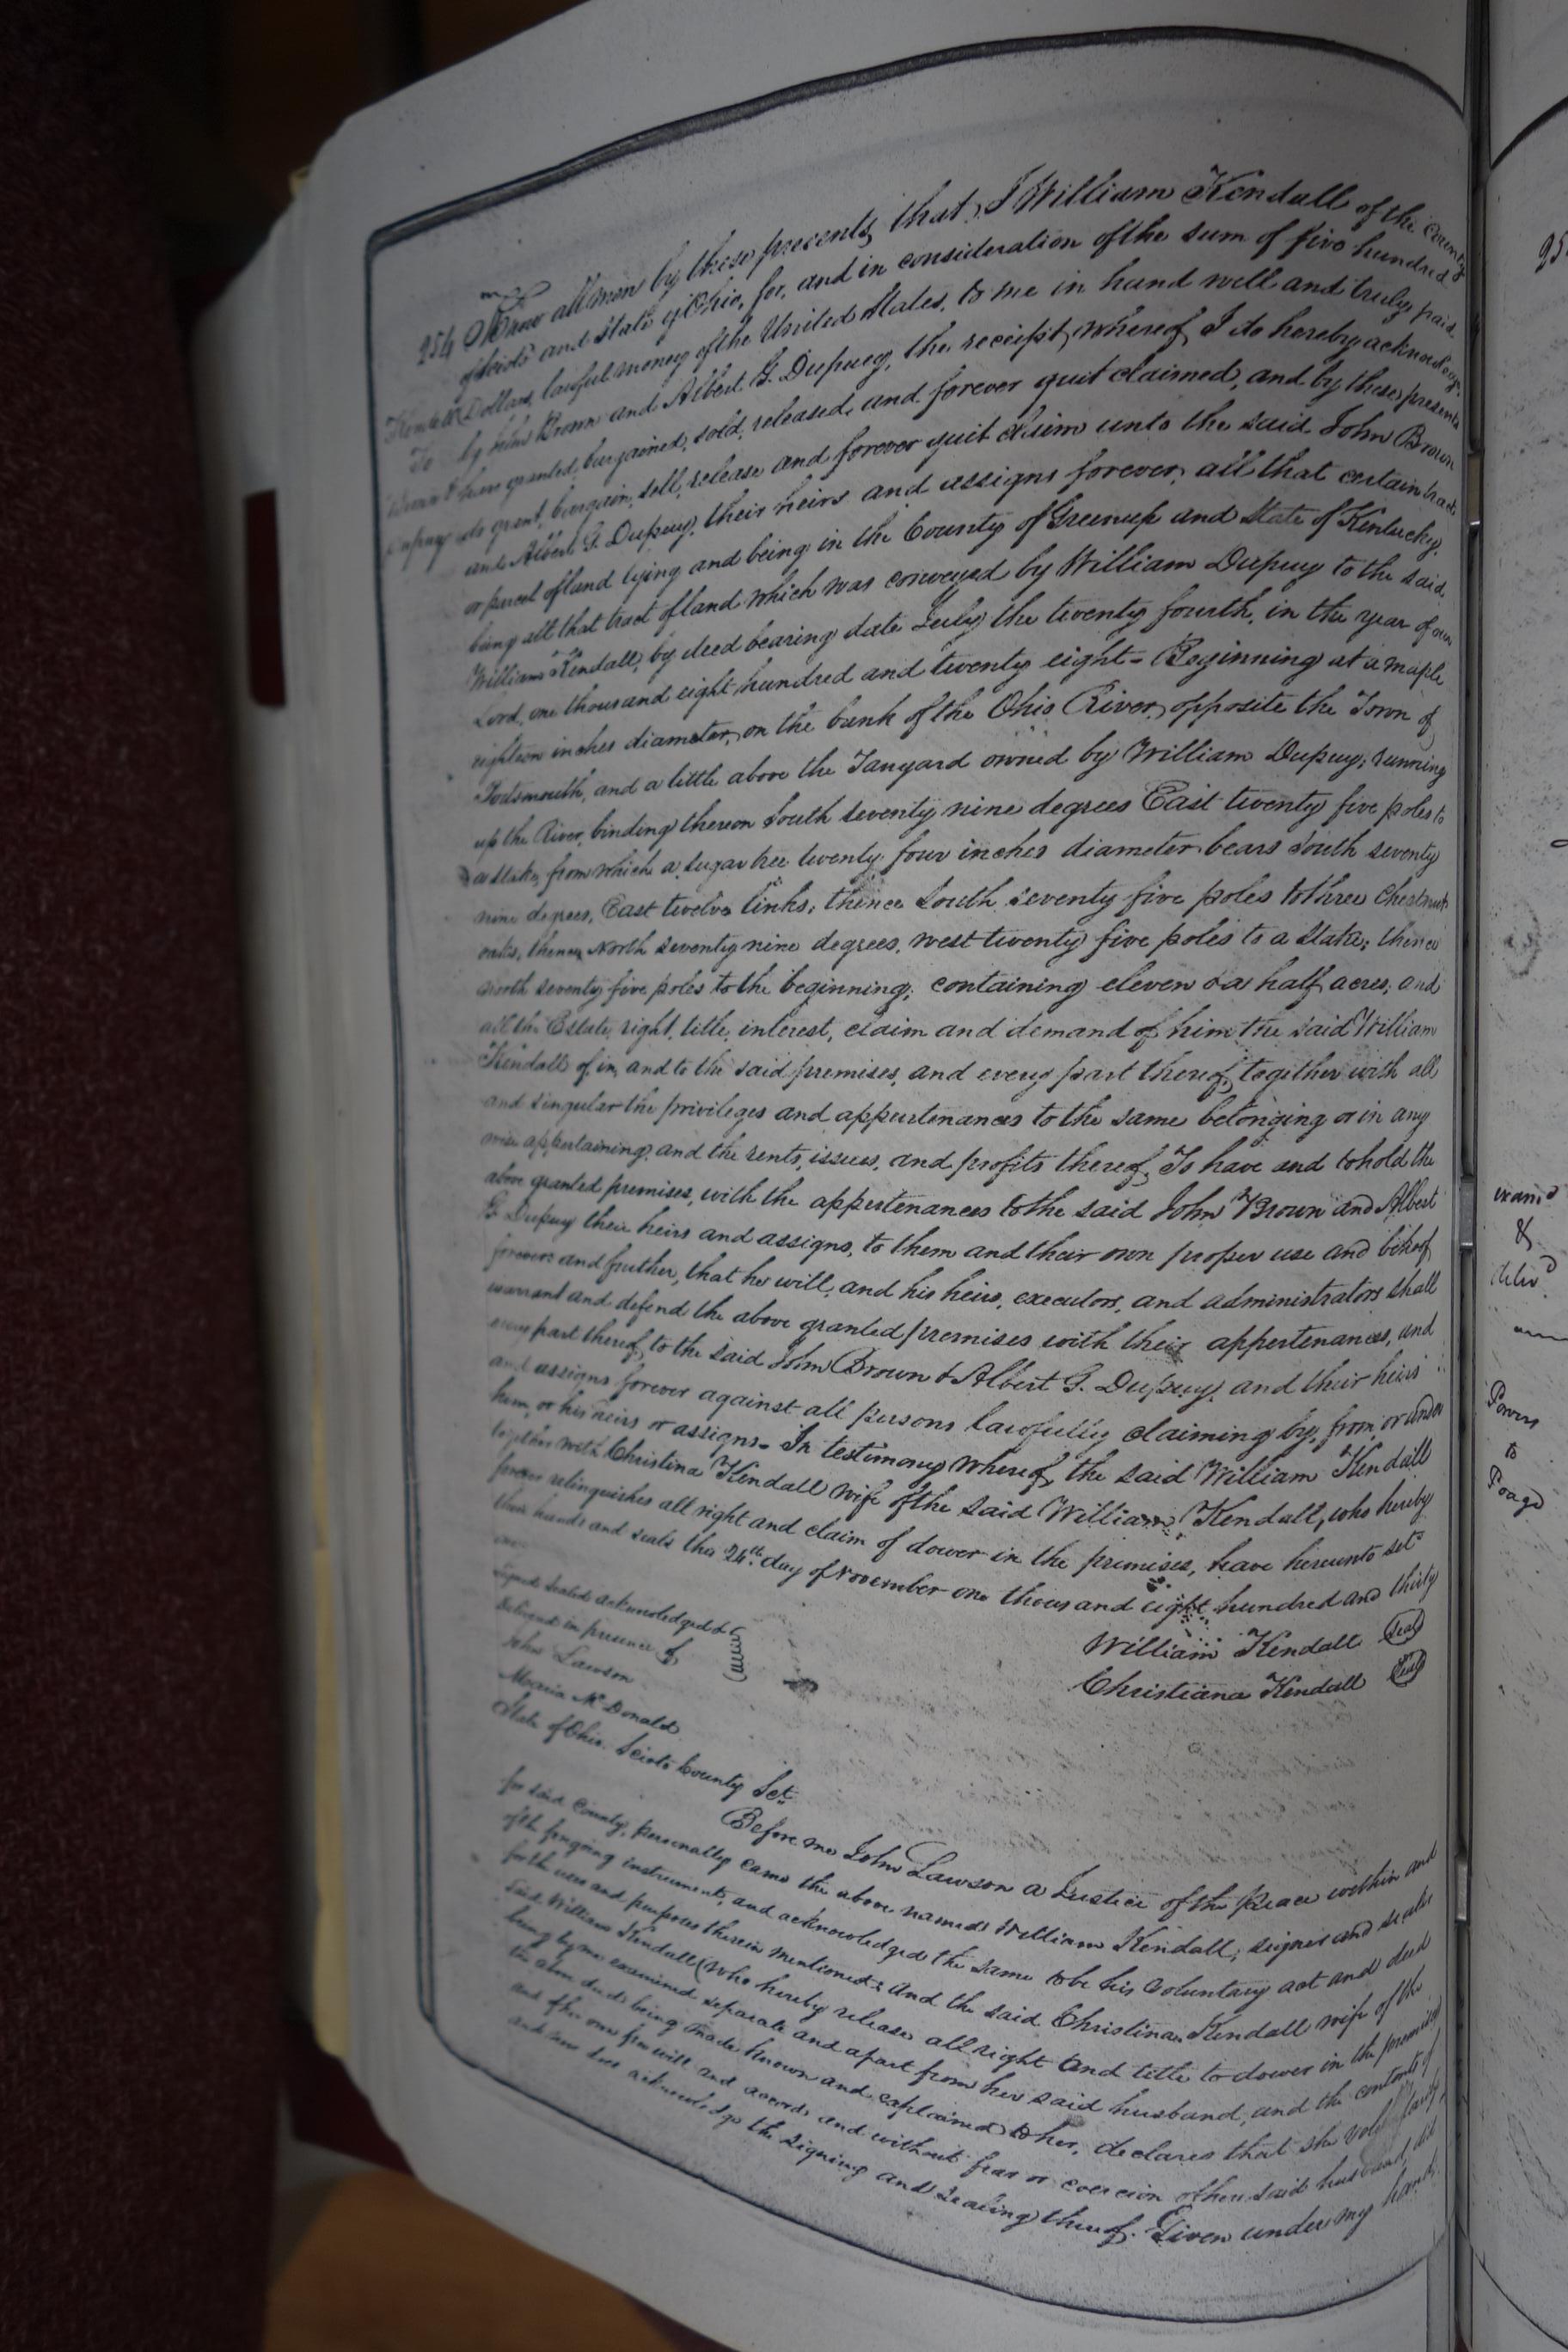 254 Know all men by these presents, that, I William Kendall of the County
of Scioto and State of Ohio, for, and in consideration of the sum of five hundred
Kendall Dollars, lawful money of the United States, to me in hand well and truly paid
To by John Brown and Albert G. Dupuey, the receipt, whereof, I do hereby acknowledge,
Brown & have granted, bargained, sold, released, and forever quit claimed, and by these presents
Dupuey do grant, bargain, sell, release and forever quit claim unto the said John Brown
and Albert G. Dupuy, their heirs and assigns forever, all that certain tract
or parcel of land lying and being in the County of Greenup and State of Kentucky,
being all that tract of land which was conveyed by William Dupuy to the said
William Kendall, by deed bearing date July the twenty fourth, in the year of our
Lord, one thousand eight hundred and twenty eight - Beginning at a maple
eighteen inches diameter, on the bank of the Ohio River, opposite the Town of
Portsmouth, and a little above the Tanyard owned by William Dupuy; running
up the River, binding thereon South seventy nine degrees East twenty five poles to
a stake, from which a sugar tree twenty four inches diameter bears South seventy
nine degrees, East twelve links; thence South seventy five poles to three Chestnut
oaks, thence North seventy nine degrees, west twenty five poles to a stake; thence
north seventy five poles to the beginning; containing eleven & a half acres, and
all the Estate, right, title, interest, claim and demand of him the said William
Kendall of, in, and to the said premises, and every part thereof, together with all
and singular the privileges and appurtenances to the same belonging or in any
wise appertaining, and the rents, issues, and profits thereof, To have and to hold the
above granted premises, with the appertenances to the said John Brown and Albert
G. Dupuy their heirs and assigns, to them and their own proper use and behoof
forever and further, that he will, and his heirs, executors, and administrators shall
warrant and defend the above granted premises with their appertenances, and
every part thereof, to the said John Brown & Albert G. Dupuy, and their heirs
and assigns forever against all persons lawfully claiming by, from, or under
him, or his heirs or assigns. In testimony whereof, the said William Kendall
together with Christina Kendall wife of the said William Kendall, who hereby
forever relinquishes all right and claim of dower in the premises, have hereunto set
their hands and seals this 24th day of November one thousand eight hundred and thirty
Signed Sealed acknowledged &
Delivered in presence of
William Kendall Seal
John Lawson
Christiana Kendall Seal
Maria McDonald
State of Ohio, Scioto County Sct.
Before me John Lawson a Justice of the Peace within and
for said County, personally came the above named William Kendall, signer and sealer
of the foregoing instrument, and acknowledged the same to be his Voluntary act and deed
for the uses and purposes therein mentioned; and the said Christina Kendall wife of the
said William Kendall (who hereby release all right and title to dower in the premises)
being by me examined separate and apart from her said husband, and the contents of
the above deed being made known and explained to her, declares that she voluntarily,
and of her own free will and accord, and without fear or coercion of her said husband, did
and now does acknowledge the signing and sealing thereof. Given under my hand
exam'd
&
deliv'd
Powers
to
Poage